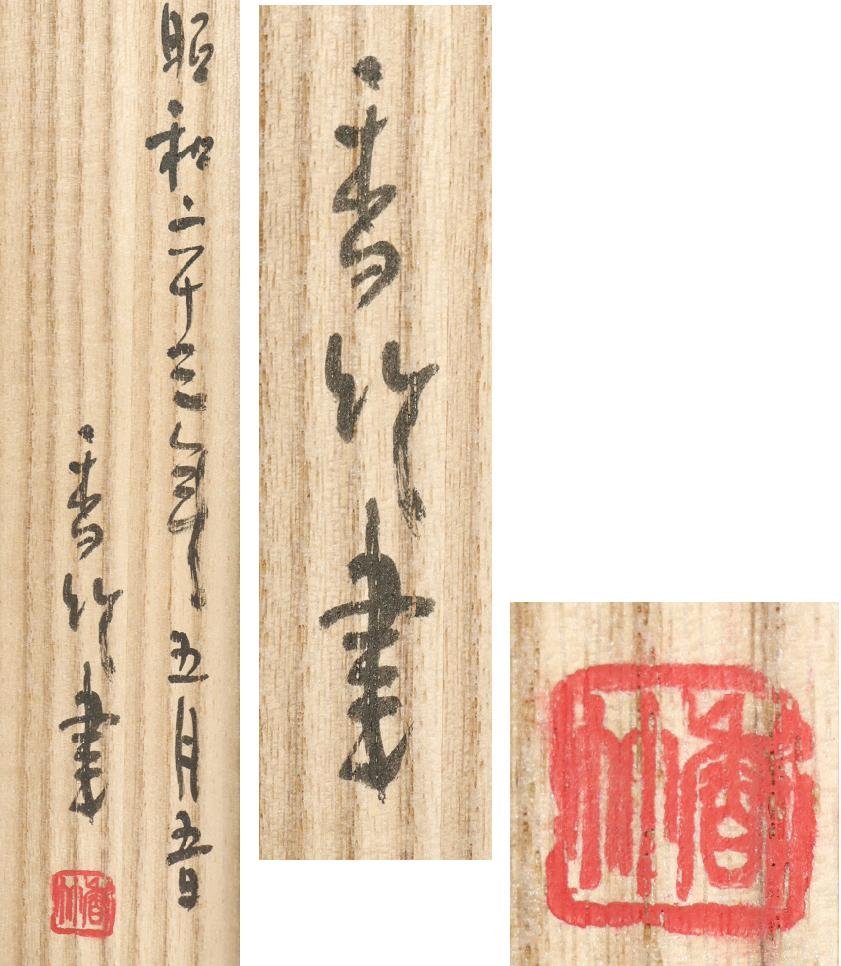 昭和二十三年五月五日
香竹書
香竹
香竹書
香竹